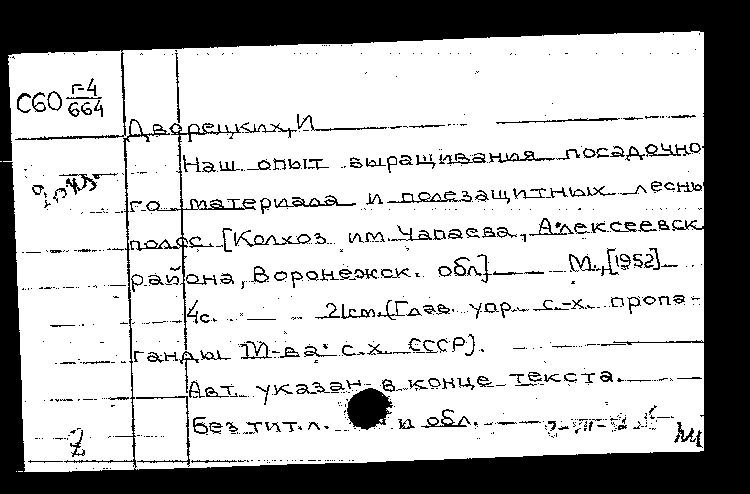 С60 г-4/664
Дворецких, И
Наш опыт выращивания посадочно-
го материала и полезащитных лесны
полос. [Колхоз им. Чапаева, Алексеевск
района, Воронежск. обл] М., [1952]
4с. 21см. (Глав. упр. с.-х. пропа-
ганды М-ва с.х. СССР).
Авт. указан в конце текста.
Без тит. л. и обл.